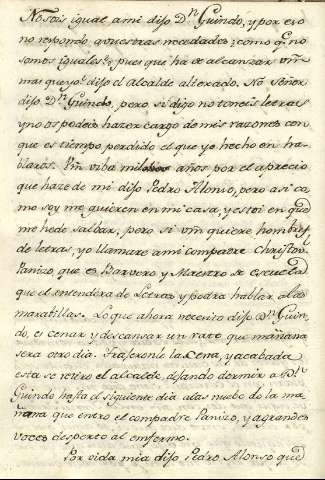 No sois igual a mi dijo Dn. Guindo, y por eso
no respondo a vuestras necedades; como qe. no
somos iguales? pues que ha de alcanzar vm.
mas que yo? dijo el Alcalde alterado. No Señor
dijo Dn. Guindo, pero si digo no teneis letras
y no os podeis hazer cargo de mis razones con
que es tiempo perdido el que yo hecho en ha-
blaros. Vm. viba mil años por el aprecio
que haze de mi dijo Pedro Alonso, pero asi co
mo soy me quieren en mi casa, y estoi en que
me he de salbar, pero si vm. quiere hombres
de letras, yo llamare a mi compadre Christoval
Panizo, que es Barvero y Maestro de escuela
que el entendera de Letras y podra hablar a las
marabillas. Lo que ahora necesito dijo Dn. Guin-
do, es cenar y descansar un rato que mañana
sera otro dia. Trajeronle la Cena, y acabada
esta se retiro el alcalde, dejando dormir a Dn.
Guindo hasta el siguiente dia a las nuebe de la ma
ñana que entro el compadre Panizo, y a grandes
voces desperto al enfermo.
Por vida mia dijo Pedro Alonso que